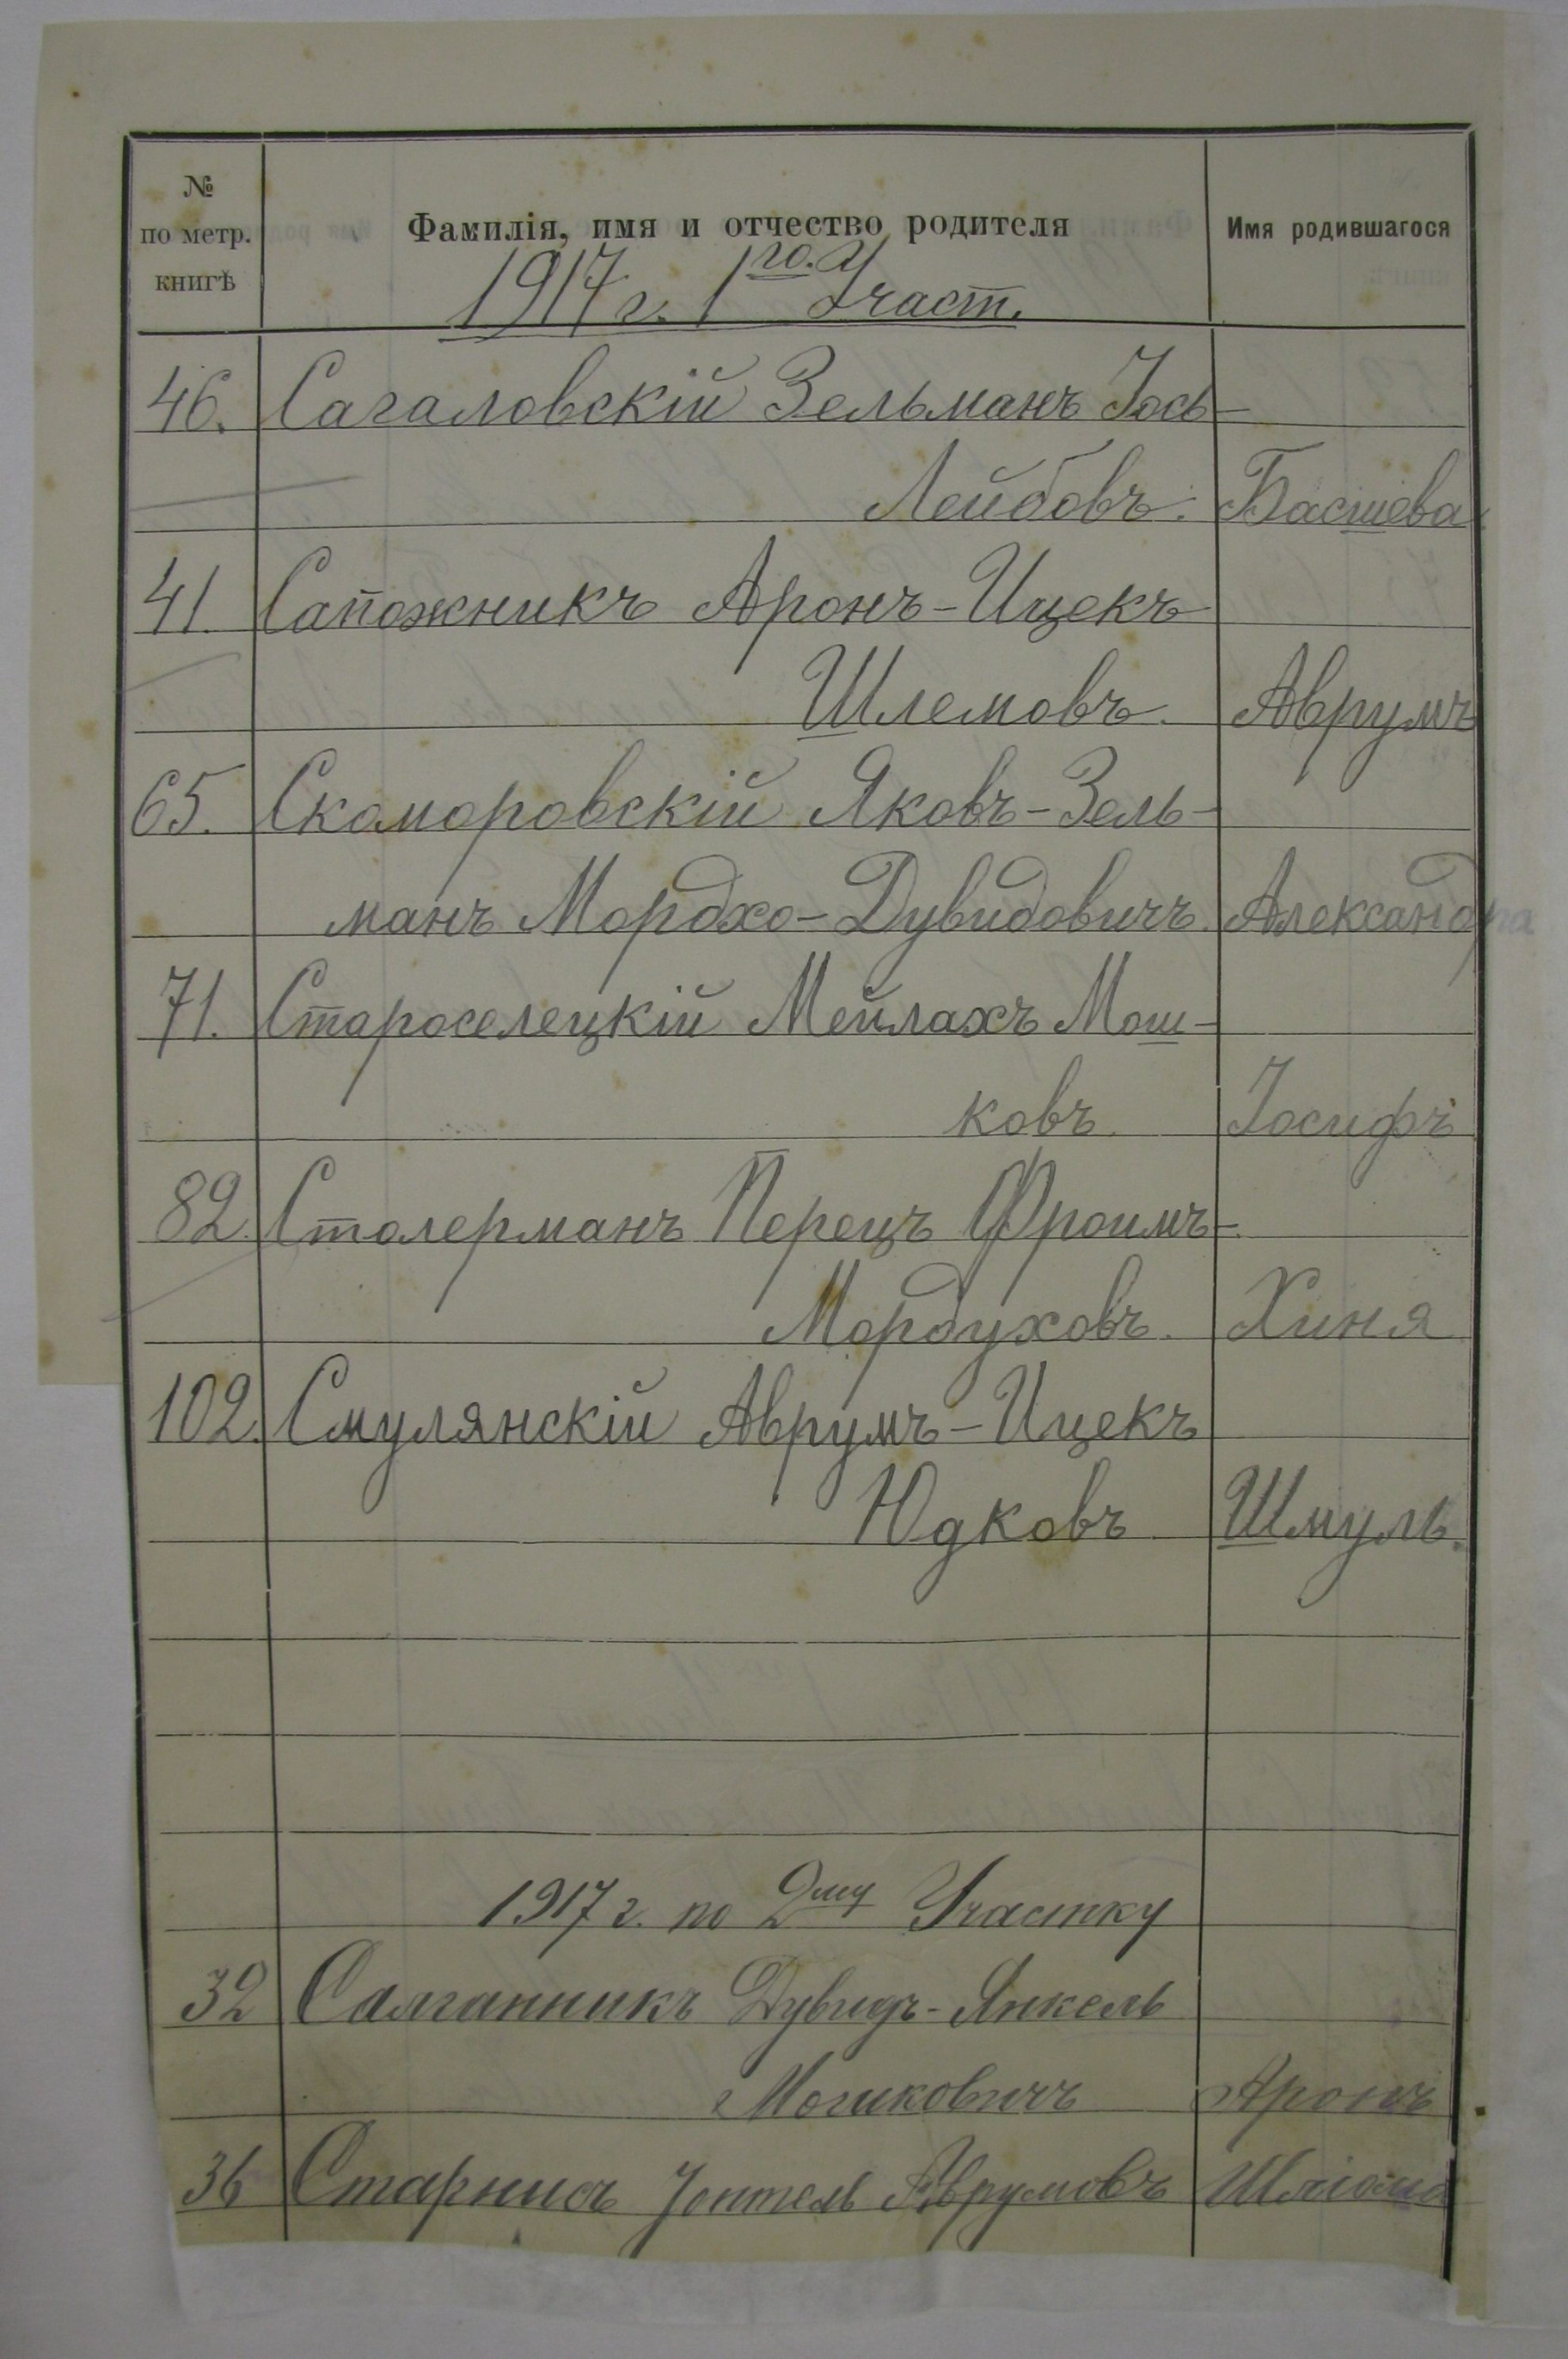 № по метр. книгѣ Фамилія, имя и отчество родителя Имя родившагося
1917 г. 1го Участ.
46. Сагаловскій Зельманъ Іось-
Лейбовъ. Басшева
41. Сапожникъ Аронъ-Ицекъ
Шлемовъ. Аврумъ
65. Скоморовскій Яковъ-Зель-
манъ Мордхо-Дувидовичъ. Александра
71. Староселецкій Мейлахъ Мош-
ковъ. Іосифъ
82. Столерманъ Перецъ Фроимъ-
Мордуховъ. Хиня
102. Смулянскій Аврумъ-Ицекъ
Юдковъ Шмуль.
1917 г. по 2му Участку
32 Салганникъ Дувидъ-Янкель
Мошковичъ Аронъ
36 Старнисъ Аврумовъ Шліома